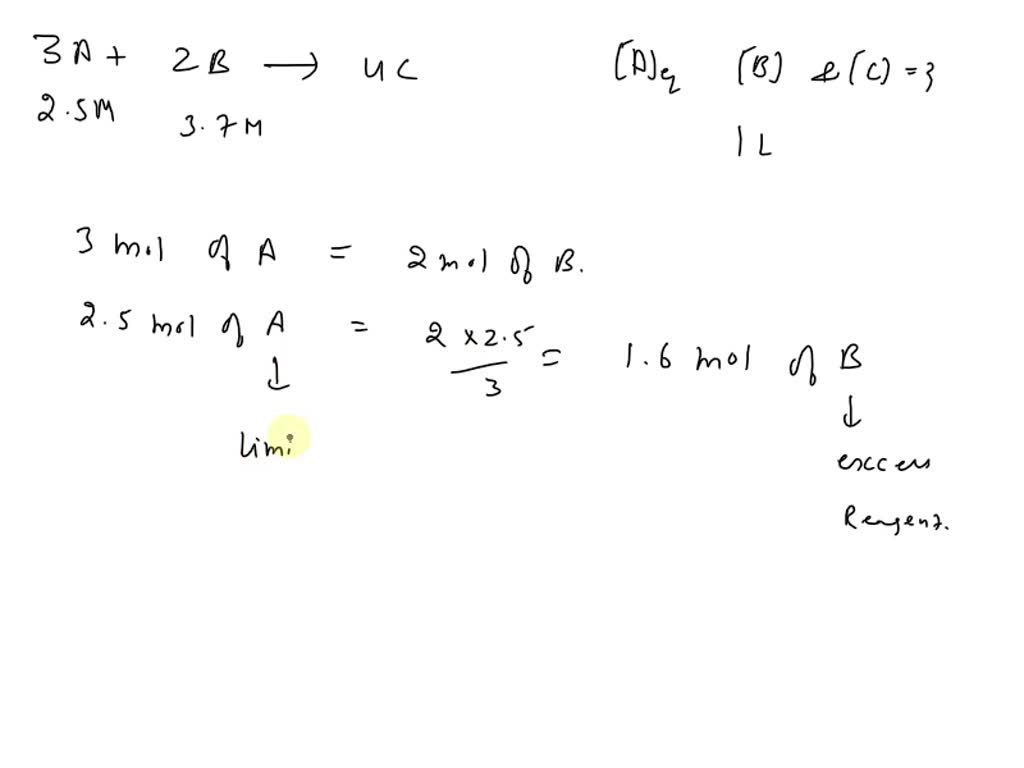 3A + 2B → 4C [A]eq [B] & [C] = ?
2.5M 3.7M 1L
3 mol of A = 2 mol of B.
2.5 mol of A = 2 x 2.5 / 3 = 1.6 mol of B
↓ ↓
limi excess
Reagent.